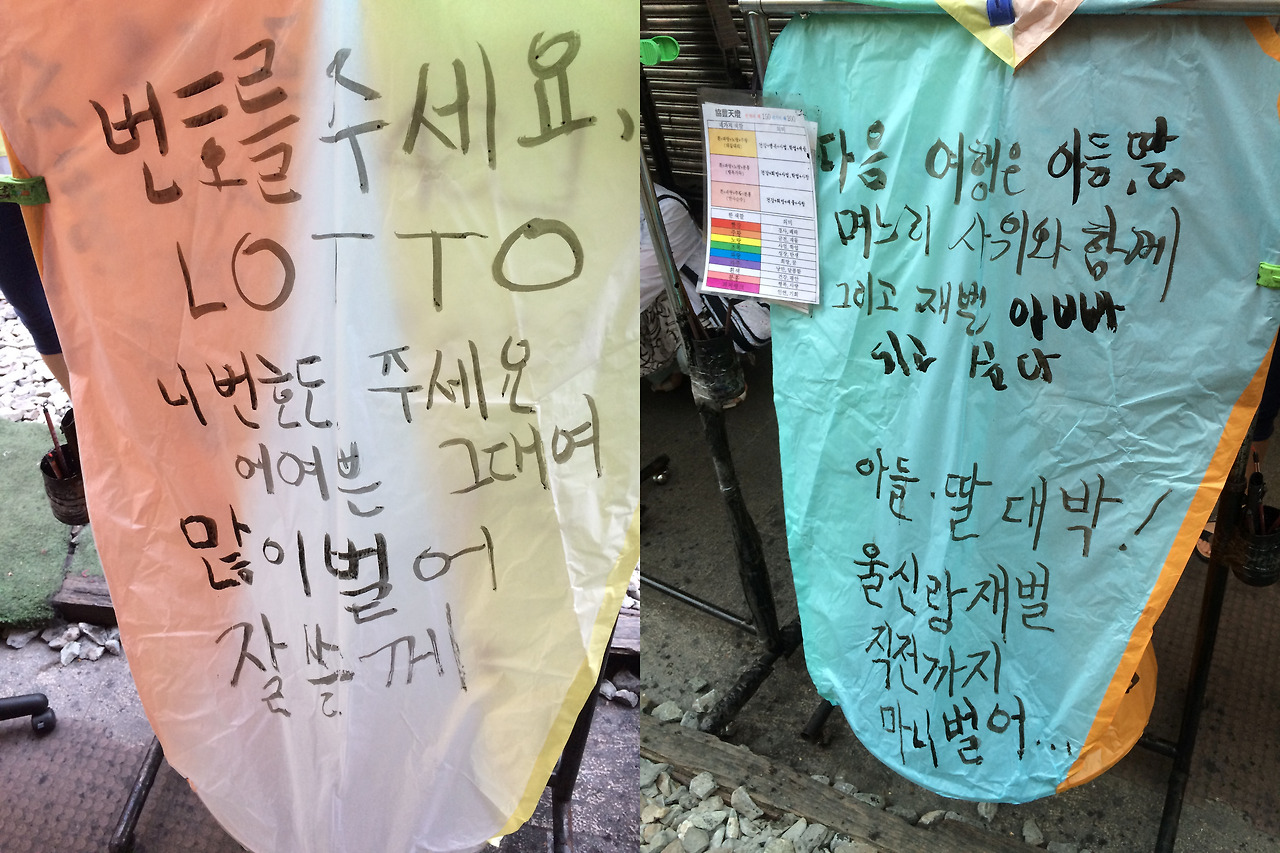 번호를 주세요,
LOTTO
니 번호도 주세요
어여쁜 그대여
많이벌어
잘쓸께
協豐天燈
의미
다음 여행은 아들,딸
며느리 사위와 함께
그리고 재벌 아빠
싶다
아들.딸 대박!
울신랑재벌
직전까지
마니벌어...